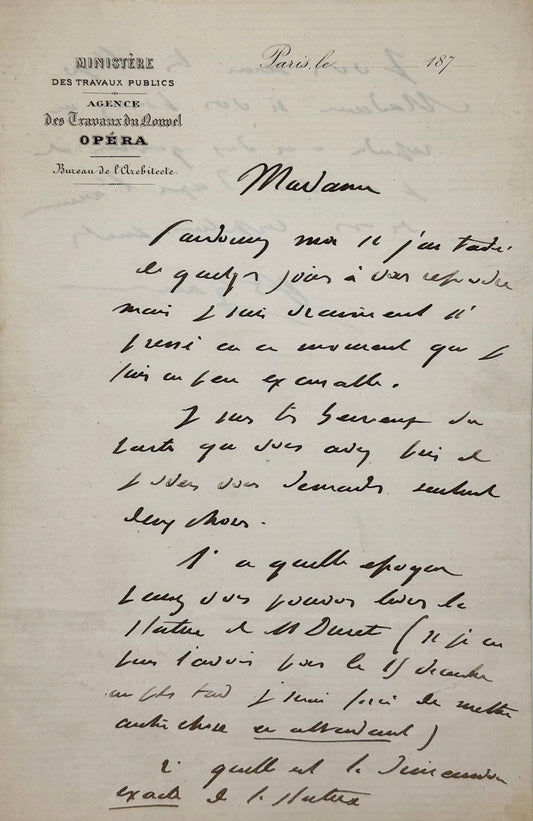 MINISTÈRE
DES TRAVAUX PUBLICS
AGENCE
des Travaux du Nouvel
OPÉRA
Bureau de l'Architecte.
Paris, le 187
Madame
Pardonnez moi si j'ai tardé
de quelqs jours à vous repondre
mais je suis vraiment si
pressé en ce moment que je
suis un peu excusable.
Je suis très heureux du
parti que vous avez pris et
je viens vous demander seulement
deux choses.
1° a quelle epoque
pensez vous pouvoir livrer la
statue de Mr Duret (si je ne
puis l'avoir pour le 15 decembre
au plus tard je serai forcé de mettre
autre chose en attendant)
2° quelle est la dimension
exacte de la statue